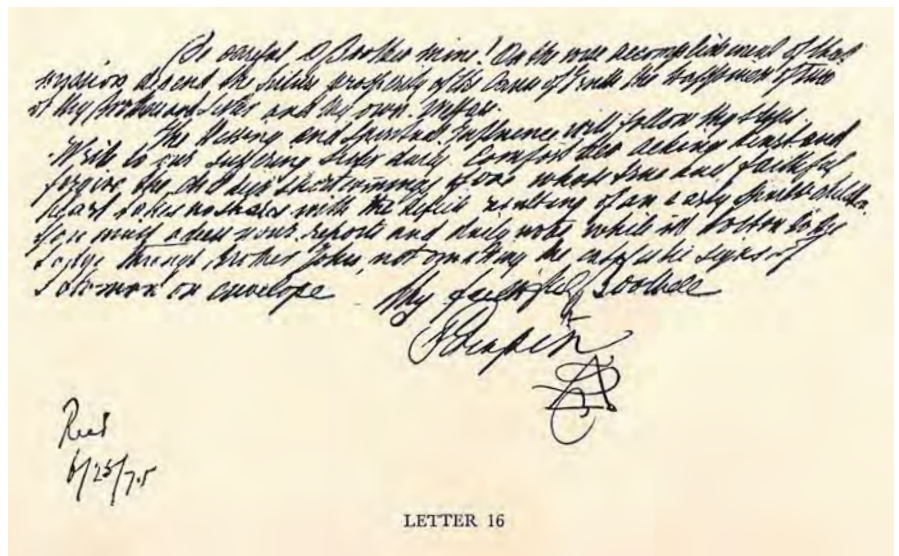 Be careful O Brother mine! On the accomplishment of that
mission, depend the future prosperity of the Cause of Truth the happiness of two
of my Brother and Sister and thy own. Welfare.
The Blessing and Spiritual Influence will follow thy steps.
Write to our suffering Sister daily. Comfort her aching heart and
forgive the childish shortcomings of one whose true and faithful
heart takes no share with the defects resulting of an early spoiled childhood.
You must adress your reports and daily notes while in Boston to the
Lodge through Brother John, not omitting the cabalistic signs of
Solomon on envelope
My faithful Brother
Serapis
Recd
6/25/75
LETTER 16